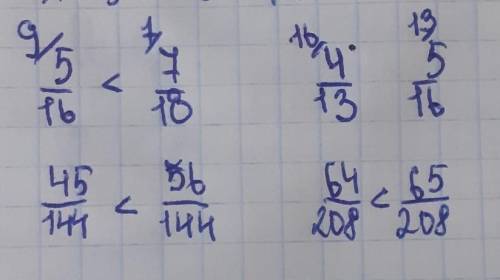 9/ 5/16 < 7/ 7/18 16/ 4/13 13/ 5/16
45/144 < 56/144 64/208 < 65/208